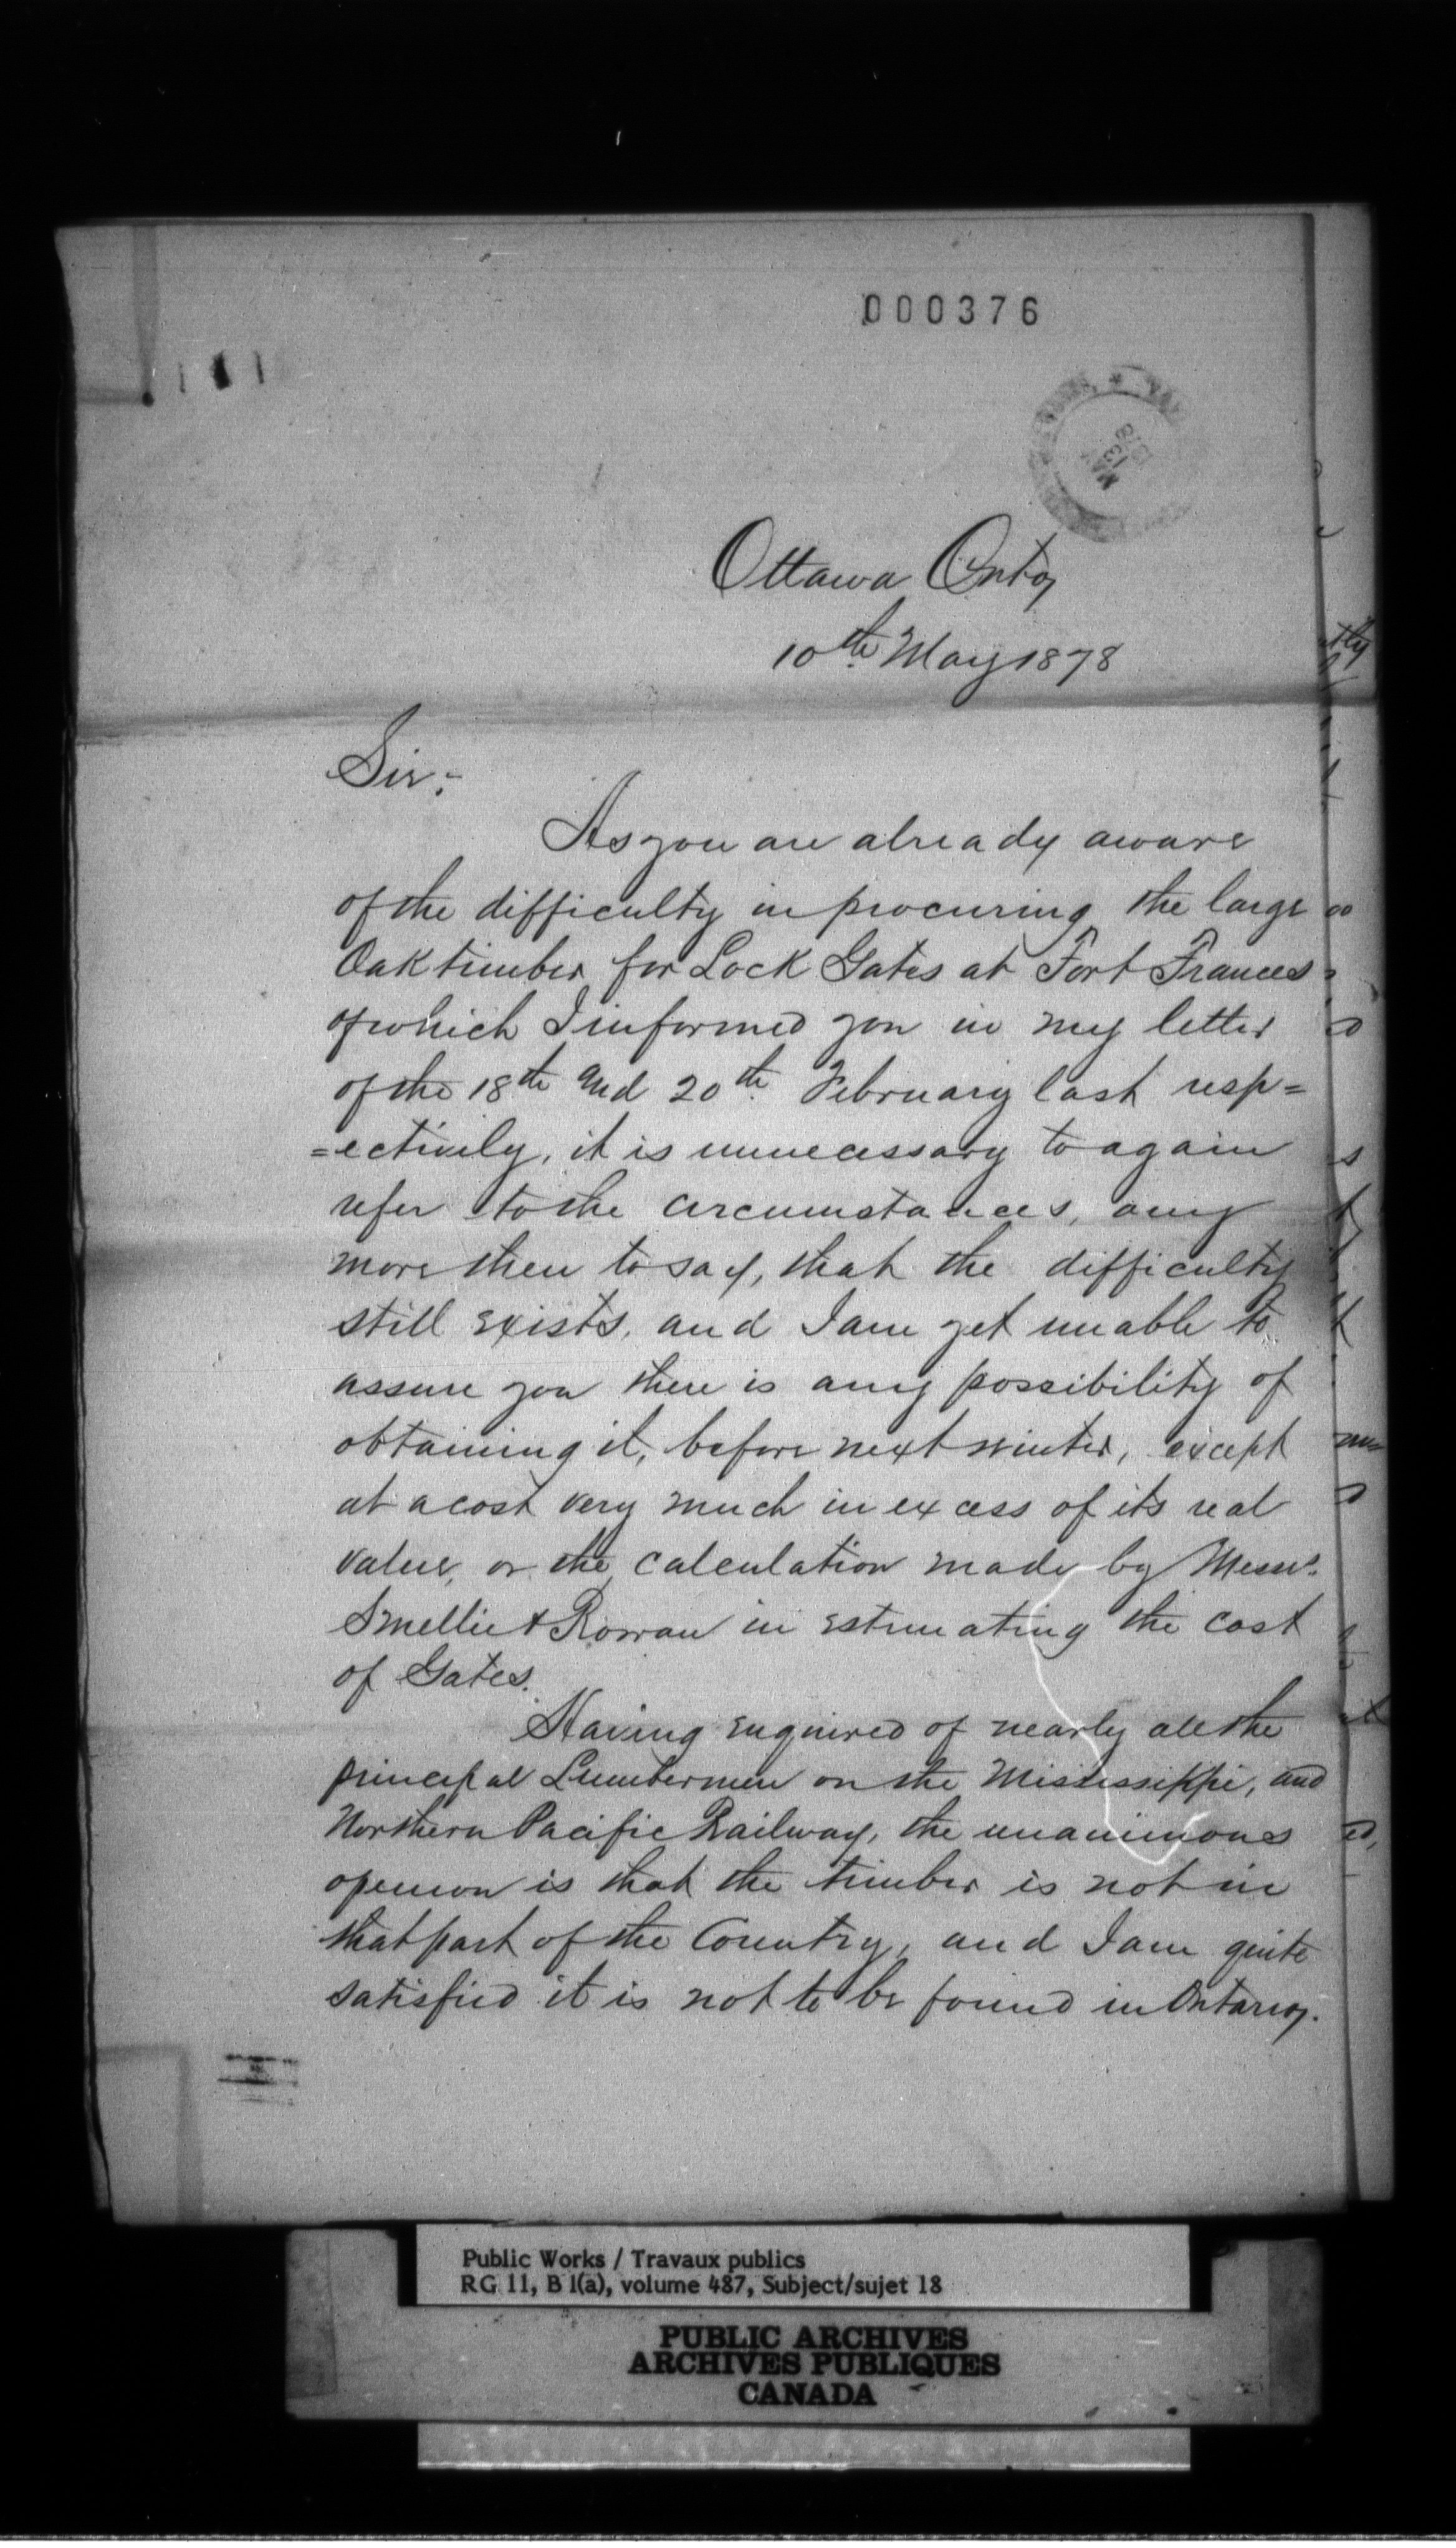 000376
MAY
13
1878
Ottawa Onto,
10th May 1878
Sir:-
As you are already aware
of the difficulty in procuring the large
Oak timber for Lock Gates at Fort Frances
of which I informed you in my letter
of the 18th and 20th February last resp=
=ectively, it is unnecessary to again
refer to the circumstances, any
more then to say, that the difficulty
still exists, and I am yet unable to
assure you there is any possibility of
obtaining it, before next winter, except
at a cost very much in excess of its real
value, or the calculation made by Messrs.
Smellie & Rowan in estimating the cost
of Gates.
Having enquired of nearly all the
principal Lumbermen on the Mississippi, and
Northern Pacific Railway, the unanimous
openion is that the timber is not in
that part of the Country, and I am quite
satisfied it is not to be found in Ontario.
Public Works / Travaux publics
RG 11, B 1(a), volume 487, Subject/sujet 18
PUBLIC ARCHIVES
ARCHIVES PUBLIQUES
CANADA